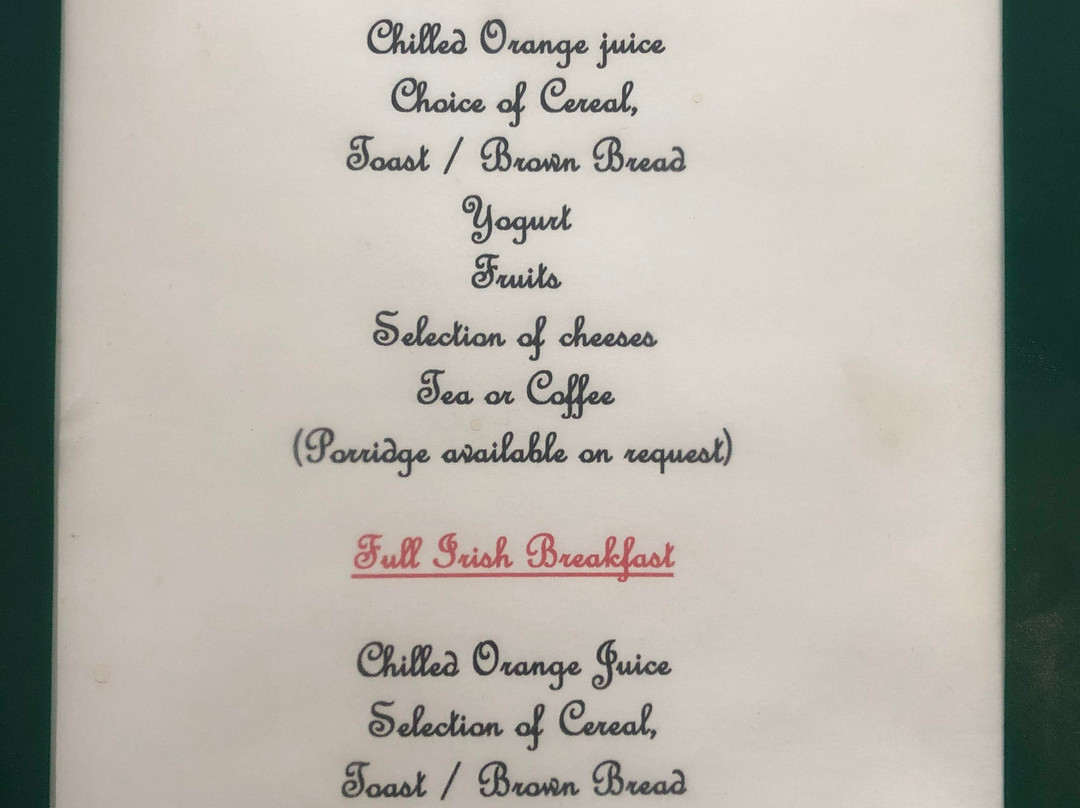 Chilled Orange juice
Choice of Cereal,
Toast / Brown Bread
Yogurt
Fruits
Selection of cheeses
Tea or Coffee
(Porridge available on request)
Full Irish Breakfast
Chilled Orange Juice
Selection of Cereal,
Toast / Brown Bread